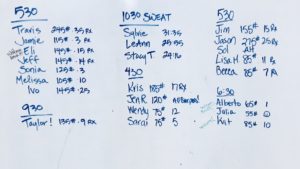 530
Travis 245# 35 RX
Jamie 115# 3 RX
Eli 145# 15 RX
Jeff 145# 14 RX
Sonia 125# 3
Melissa 105# 10
Ivo 145# 25
930
Taylor! 135# 9 RX
1030 SWEAT
Sylvie 31:35
LeAnn 25:35
Stacy T. 29:16
430
Kris 155# 17 RX
Jen R. 120#
Wendy 75# 12
Sarai 75# 5
530
Jim 155# 15 RX
Jason 275# 25 RX
Sol 24#
Lisa H. 85# 11 RX
Becca 85# 7 RX
6:30
Alberto 65# 1
Julia 55#
Kit 85# 10